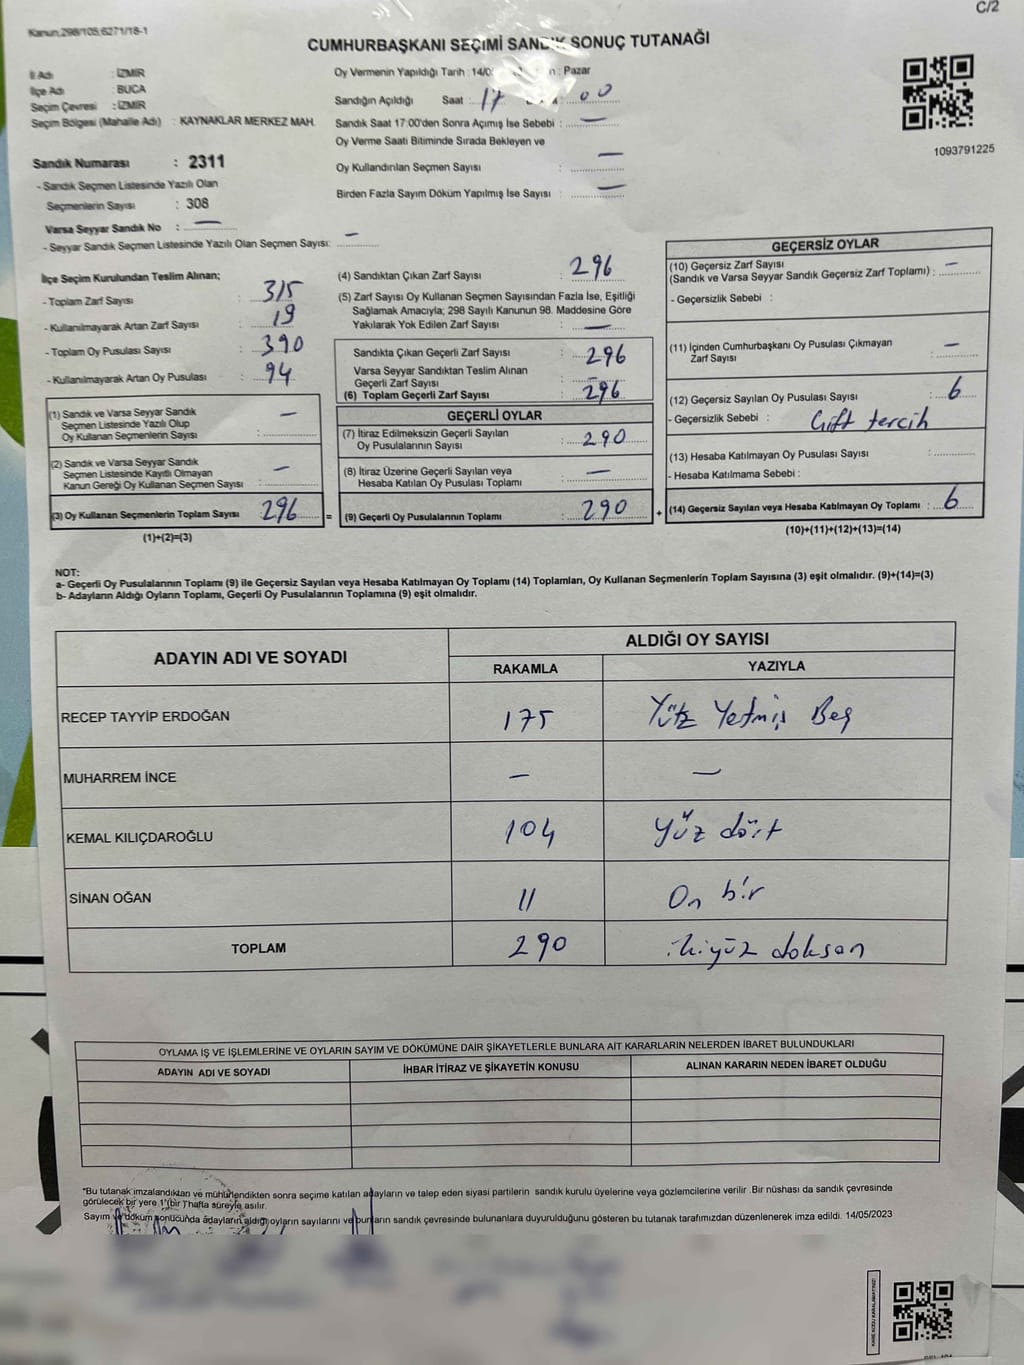 C/2
Kanun,298/105,6271/18-1
CUMHURBAŞKANI SEÇİMİ SANDIK SONUÇ TUTANAĞI
İl Adı : İZMİR
İlçe Adı : BUCA
Seçim Çevresi : İZMİR
Seçim Bölgesi (Mahalle Adı) : KAYNAKLAR MERKEZ MAH.
Oy Vermenin Yapıldığı Tarih : 14/0 : Pazar
Sandığın Açıldığı Saat : 17 : 00
Sandık Saat 17:00'den Sonra Açımış İse Sebebi : —
Oy Verme Saati Bitiminde Sırada Bekleyen ve
Oy Kullandırılan Seçmen Sayısı —
Birden Fazla Sayım Döküm Yapılmış İse Sayısı : —
1093791225
Sandık Numarası : 2311
- Sandık Seçmen Listesinde Yazılı Olan
Seçmenlerin Sayısı : 308
Varsa Seyyar Sandık No : —
- Seyyar Sandık Seçmen Listesinde Yazılı Olan Seçmen Sayısı: —
İlçe Seçim Kurulundan Teslim Alınan;
- Toplam Zarf Sayısı : 315
- Kullanılmayarak Artan Zarf Sayısı : 19
- Toplam Oy Pusulası Sayısı : 390
- Kullanılmayarak Artan Oy Pusulası : 94
(1) Sandık ve Varsa Seyyar Sandık
Seçmen Listesinde Yazılı Olup
Oy Kullanan Seçmenlerin Sayısı : —
(2) Sandık ve Varsa Seyyar Sandık
Seçmen Listesinde Kayıtlı Olmayan
Kanun Gereği Oy Kullanan Seçmen Sayısı : —
(3) Oy Kullanan Seçmenlerin Toplam Sayısı 296 =
(1)+(2)=(3)
(4) Sandıktan Çıkan Zarf Sayısı : 296
(5) Zarf Sayısı Oy Kullanan Seçmen Sayısından Fazla İse, Eşitliği
Sağlamak Amacıyla; 298 Sayılı Kanunun 98. Maddesine Göre
Yakılarak Yok Edilen Zarf Sayısı : —
Sandıkta Çıkan Geçerli Zarf Sayısı : 296
Varsa Seyyar Sandıktan Teslim Alınan
Geçerli Zarf Sayısı : —
(6) Toplam Geçerli Zarf Sayısı : 296
GEÇERLİ OYLAR
(7) İtiraz Edilmeksizin Geçerli Sayılan
Oy Pusulalarının Sayısı : 290
(8) İtiraz Üzerine Geçerli Sayılan veya
Hesaba Katılan Oy Pusulası Toplamı : —
(9) Geçerli Oy Pusulalarının Toplamı : 290 +
GEÇERSİZ OYLAR
(10) Geçersiz Zarf Sayısı
(Sandık ve Varsa Seyyar Sandık Geçersiz Zarf Toplamı) : —
- Geçersizlik Sebebi :
(11) İçinden Cumhurbaşkanı Oy Pusulası Çıkmayan
Zarf Sayısı : —
(12) Geçersiz Sayılan Oy Pusulası Sayısı : 6
- Geçersizlik Sebebi : Çift tercih
(13) Hesaba Katılmayan Oy Pusulası Sayısı :
- Hesaba Katılmama Sebebi :
(14) Geçersiz Sayılan veya Hesaba Katılmayan Oy Toplamı : 6
(10)+(11)+(12)+(13)=(14)
NOT:
a- Geçerli Oy Pusulalarının Toplamı (9) ile Geçersiz Sayılan veya Hesaba Katılmayan Oy Toplamı (14) Toplamları, Oy Kullanan Seçmenlerin Toplam Sayısına (3) eşit olmalıdır. (9)+(14)=(3)
b- Adayların Aldığı Oyların Toplamı, Geçerli Oy Pusulalarının Toplamına (9) eşit olmalıdır.
ADAYIN ADI VE SOYADI ALDIĞI OY SAYISI
RAKAMLA YAZIYLA
RECEP TAYYİP ERDOĞAN 175 Yüz Yetmiş Beş
MUHARREM İNCE — —
KEMAL KILIÇDAROĞLU 104 yüz dört
SİNAN OĞAN 11 On bir
TOPLAM 290 ikiyüz doksan
OYLAMA İŞ VE İŞLEMLERİNE VE OYLARIN SAYIM VE DÖKÜMÜNE DAİR ŞİKAYETLERLE BUNLARA AİT KARARLARIN NELERDEN İBARET BULUNDUKLARI
ADAYIN ADI VE SOYADI İHBAR İTİRAZ VE ŞİKAYETİN KONUSU ALINAN KARARIN NEDEN İBARET OLDUĞU
*Bu tutanak imzalandıktan ve mühürlendikten sonra seçime katılan adayların ve talep eden siyasi partilerin sandık kurulu üyelerine veya gözlemcilerine verilir .Bir nüshası da sandık çevresinde
görülecek bir yere 1 (bir )hafta süreyle asılır.
Sayım ve döküm sonucunda adayların aldığı oyların sayılarını ve bunların sandık çevresinde bulunanlara duyurulduğunu gösteren bu tutanak tarafımızdan düzenlenerek imza edildi. 14/05/2023
KARE KODU KARALAMAYINIZ!